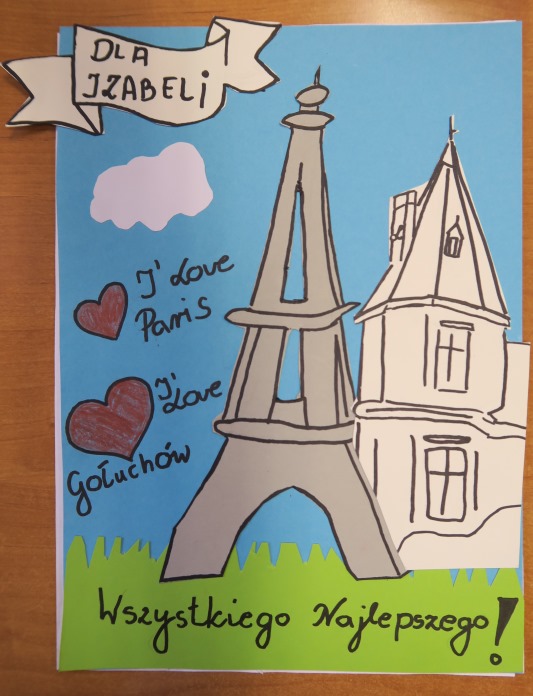 DLA
IZABELi
I' Love
Paris
I'
Love
Gołuchów
Wszystkiego Najlepszego!